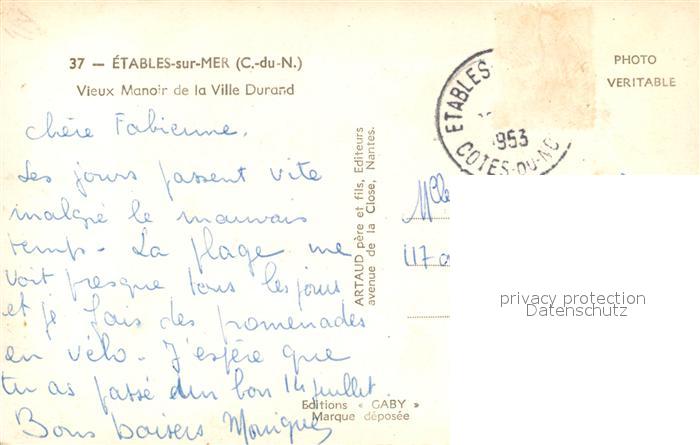 37 — ÉTABLES-sur-MER (C.-du-N.)
Vieux Manoir de la Ville Durand
Chère Fabienne,
Les jours passent vite
malgré le mauvais
temps - La plage me
voit presque tous les jours
et je fais des promenades
en vélo - J'espère que
tu as passé un bon 14 juillet.
Bons baisers Monique
Editions « GABY »
Marque déposée
ARTAUD père et fils, Editeurs
avenue de la Close, Nantes.
ETABLES
1953
COTES-DU-NO
PHOTO
VERITABLE
Mlle
117 a
privacy protection
Datenschutz